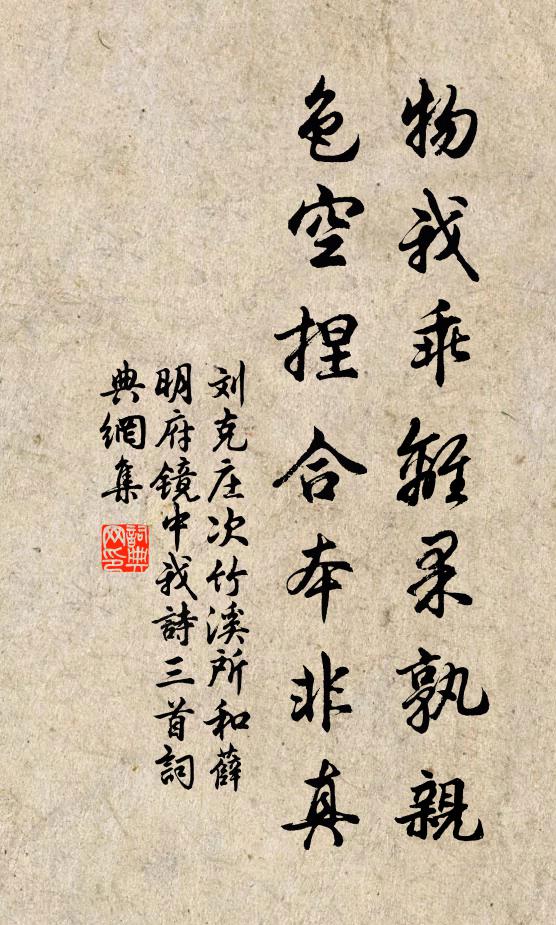 物我乖離果孰親
色空捏合本非真
刘克庄次竹溪所和薛
明府镜中我詩三首詞
典網集
詞典
网印